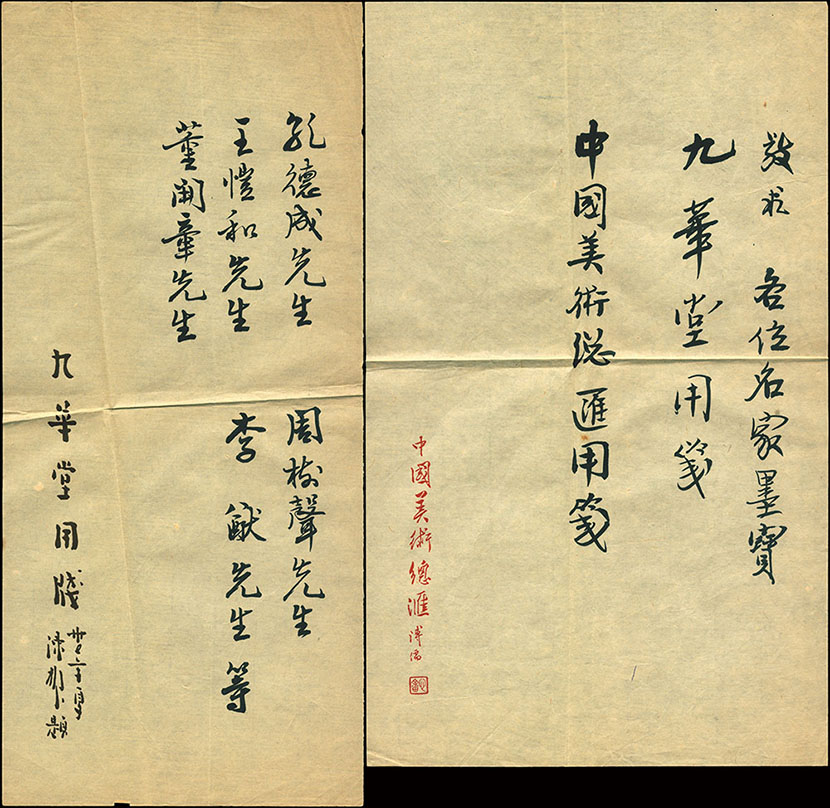 敬求 各位名家墨寶
九華堂用箋
中國美術総匯用箋
中國美術總滙 溥儒
德成先生 周樹聲先生
王愷和先生 李猷先生等
董開章先生
九華堂用牋
題